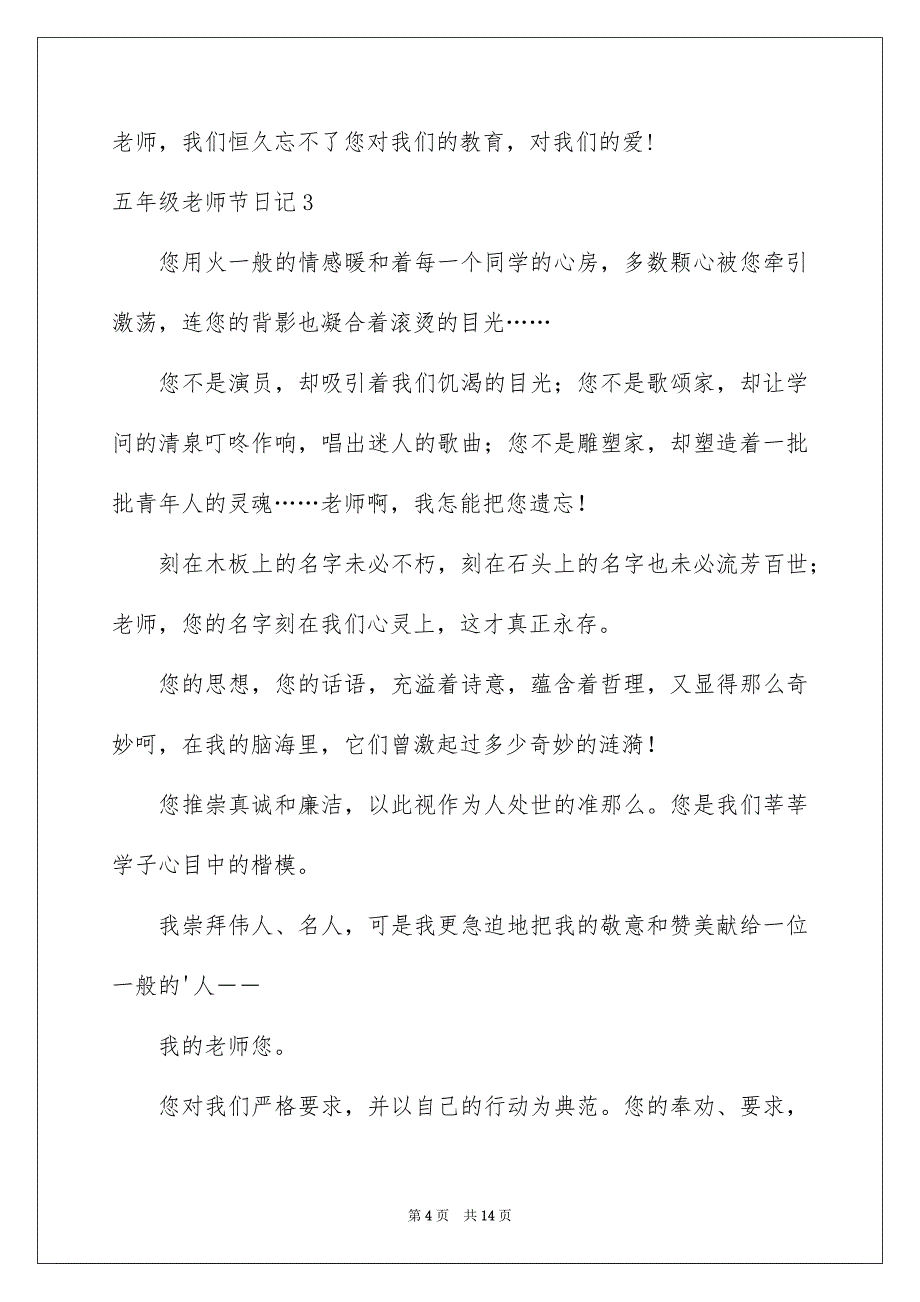 老师，我们恒久忘不了您对我们的教育，对我们的爱!
五年级老师节日记3
您用火一般的情感暖和着每一个同学的心房，多数颗心被您牵引
激荡，连您的背影也凝合着滚烫的目光……
您不是演员，却吸引着我们饥渴的目光；您不是歌颂家，却让学
问的清泉叮咚作响，唱出迷人的歌曲；您不是雕塑家，却塑造着一批
批青年人的灵魂……老师啊，我怎能把您遗忘!
刻在木板上的名字未必不朽，刻在石头上的名字也未必流芳百世；
老师，您的名字刻在我们心灵上，这才真正永存。
您的思想，您的话语，充溢着诗意，蕴含着哲理，又显得那么奇
妙呵，在我的脑海里，它们曾激起过多少奇妙的涟漪!
您推崇真诚和廉洁，以此视作为人处世的准那么。您是我们莘莘
学子心目中的楷模。
我崇拜伟人、名人，可是我更急迫地把我的敬意和赞美献给一位
一般的'人－－
我的老师您。
您对我们严格要求，并以自己的行动为典范。您的奉劝、要求，
第 4 页 共 14 页